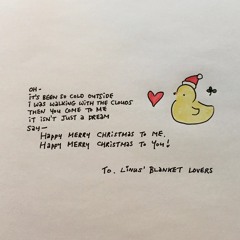 OH-
IT'S BEEN SO COLD OUTSIDE
I WAS WALKING WITH THE CLOUDS
THEN YOU COME TO ME
IT ISN'T JUST A DREAM
SAY-
HAPPY MERRY CHRISTMAS TO ME.
HAPPY MERRY CHRISTMAS TO YOU!
TO. LINUS' BLANKET LOVERS